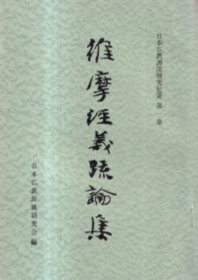 日本仏教源流研究紀要 第一号
維摩経義疏論集
日本仏教源流研究会 編